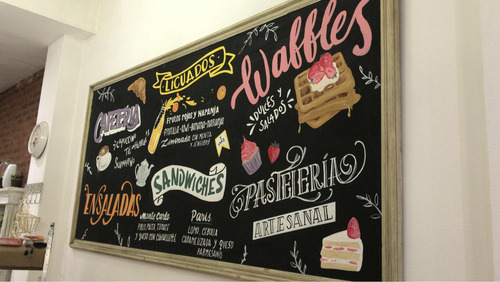 LICUADOS
Frutos rojos y naranja
Frutilla-kiwi-banana-naranja
Limonada con menta
y jengibre
Waffles
DULCES y
SALADOS
CAFETERÍA
Capuccino
Submarino
SANDWICHES
ENSALADAS
Monte Carlo
y queso con ciabatta
Paris
LOMO, CEBOLLA
CARAMELIZADA y QUESO
PARMESANO
PASTELERÍA
ARTESANAL